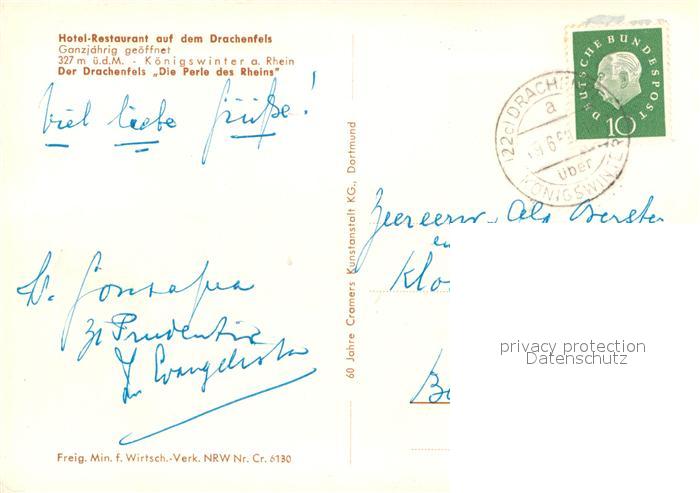 Hotel-Restaurant auf dem Drachenfels
Ganzjährig geöffnet
327 m ü.d.M. - Königswinter a. Rhein
Der Drachenfels „Die Perle des Rheins"
Viel liebe Grüße!
Zr Prudentia
Zr Evangelista
Freig. Min. f. Wirtsch.-Verk. NRW Nr. Cr. 6130
60 Jahre Cramers Kunstanstalt KG., Dortmund
DEUTSCHE BUNDESPOST
10
(22c) DRACHENFELS
a
über
KÖNIGSWINTER
Klo
privacy protection
Datenschutz